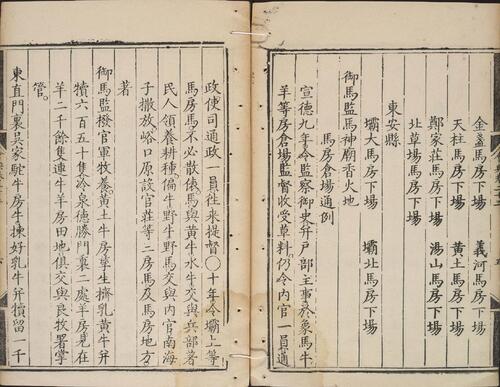 金盞馬房下場　義河馬房下場
天柱馬房下場　黃土馬房下場
鄭家莊馬房下場　湯山馬房下場
北草場馬房下場
東安縣
壩大馬房下場　壩北馬房下場
御馬監馬神廟香火地
馬房倉場通例
宣德九年令監察御史幷戶部主事於象馬牛
羊等房倉場監督收受草料仍令內官一員通
政使司通政一員往來提督○十年令壩上等
馬房馬不必散俵馬與黃牛水牛交與兵部著
民人領養耕種犏牛野牛野馬交與內官南海
子撒放峪口原設官莊等二房馬及馬房地方
著
御馬監撥官軍牧養黃土牛房孳生擠乳黃牛幷
犢六百五十隻冷泉德勝門裏二處羊房見在
羊二千餘隻連牛羊房田地俱交與良牧署掌
管
東直門裏吳家駝牛房牛揀好乳牛幷犢留一千